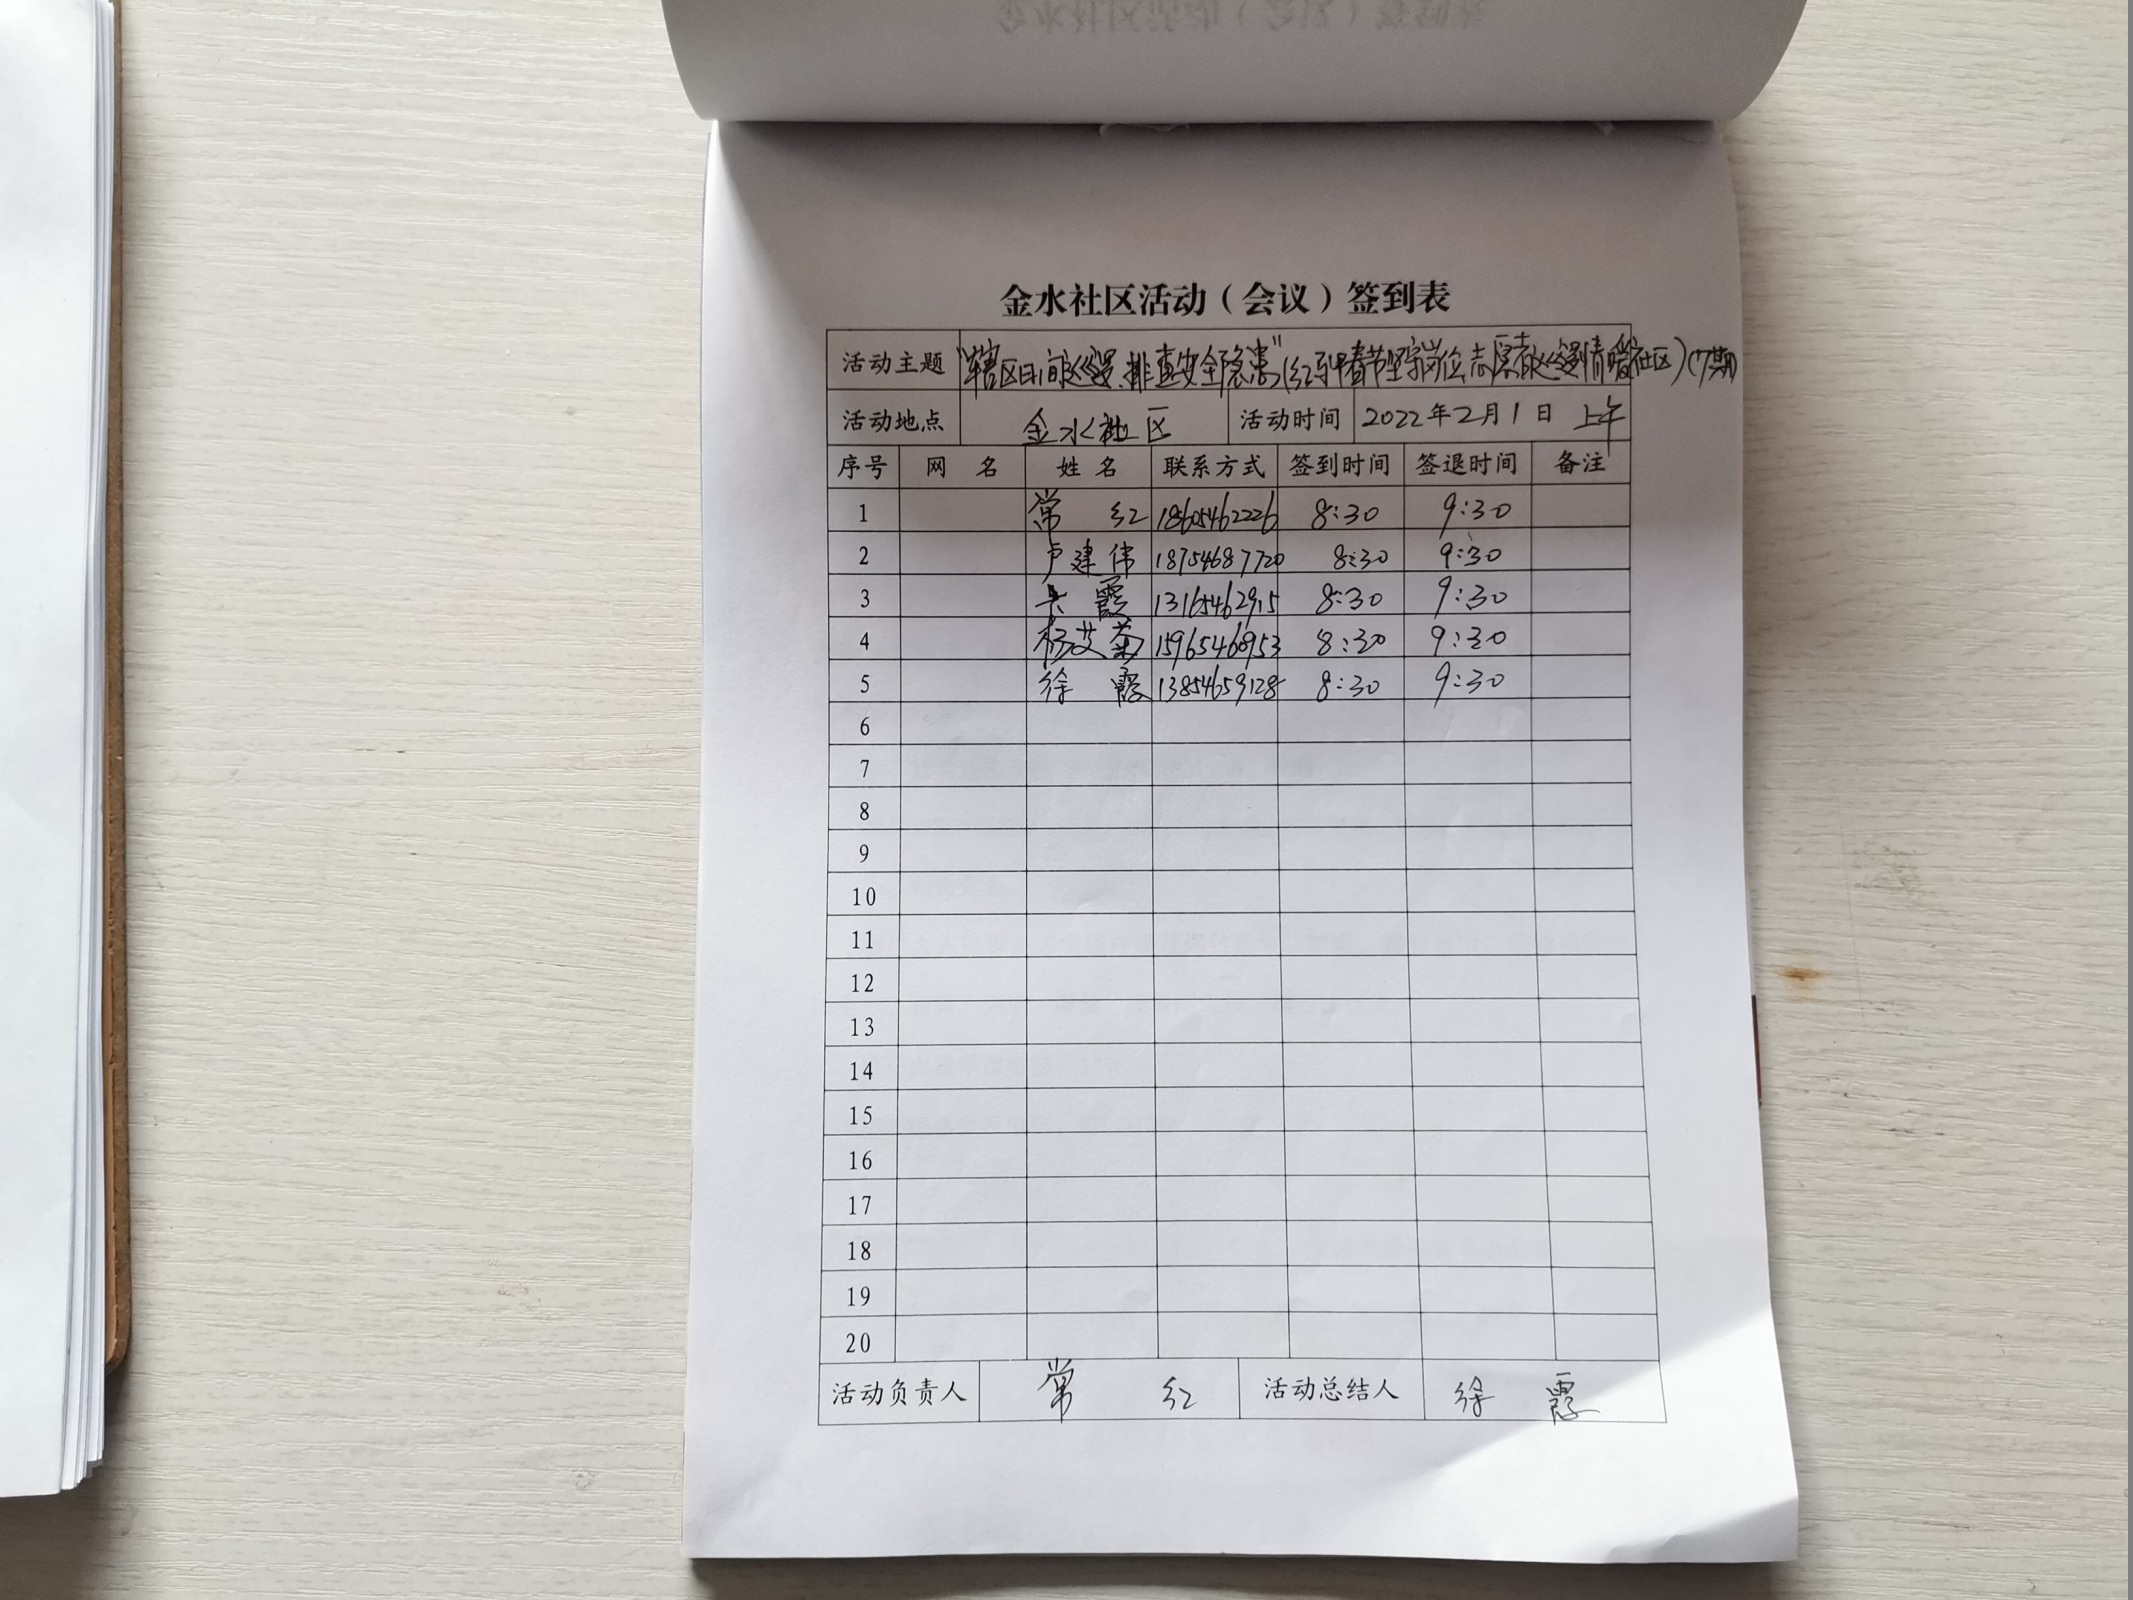 金水社区活动（会议）签到表
活动主题 “辖区日间巡逻、排查安全隐患”（红马甲春节坚守岗位，志愿者巡逻情暖社区）（7期）
活动地点 金水社区 活动时间 2022年2月1日 上午
序号 网 名 姓 名 联系方式 签到时间 签退时间 备注
1 常 红 18605462226 8:30 9:30
2 卢建伟 18754687720 8:30 9:30
3 霞 13165462915 8:30 9:30
4 杨艾菊 15965460953 8:30 9:30
5 徐 霞 13854659128 8:30 9:30
6
7
8
9
10
11
12
13
14
15
16
17
18
19
20
活动负责人 常 红 活动总结人 徐 霞